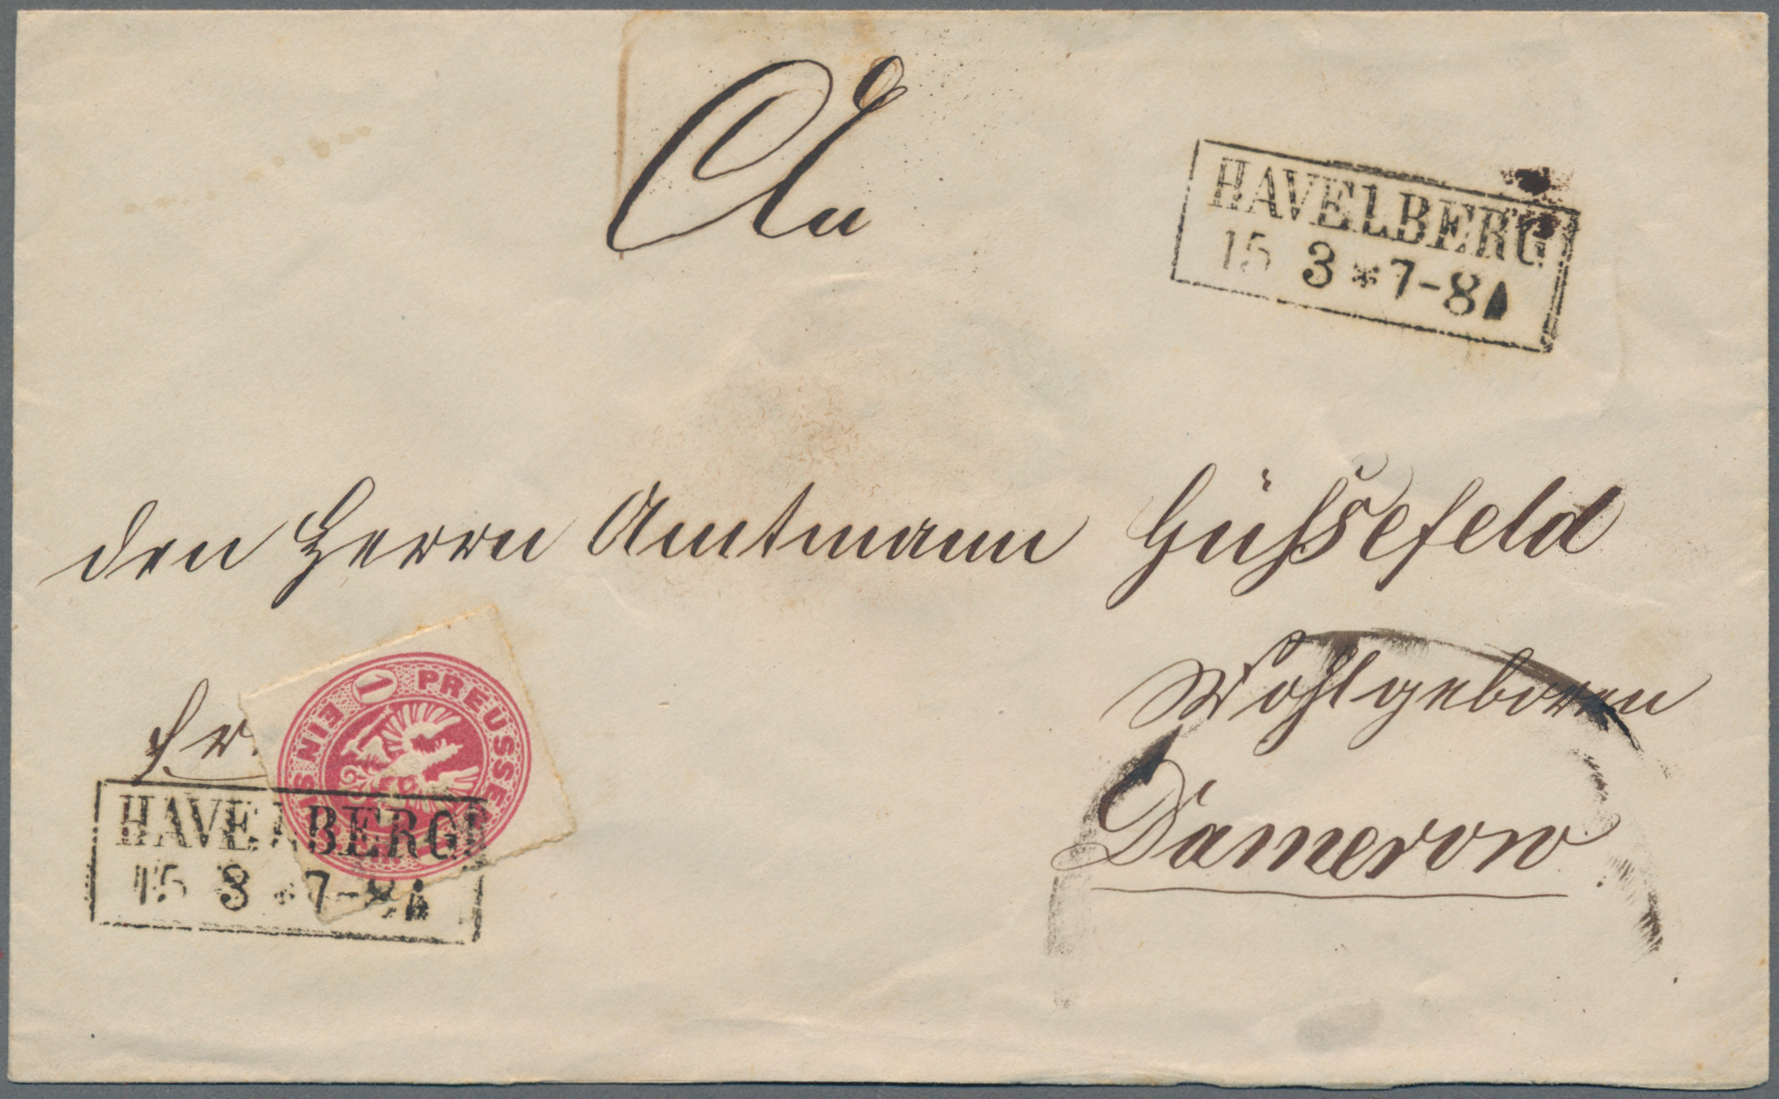 An
HAVELBERG
15 3 * 7-8
den Herrn Amtmann Hüfsefeld
Wohlgeboren
fr.
1 PREUSSE
EIN SI
Damerow
HAVELBERG
15 3 * 7-8